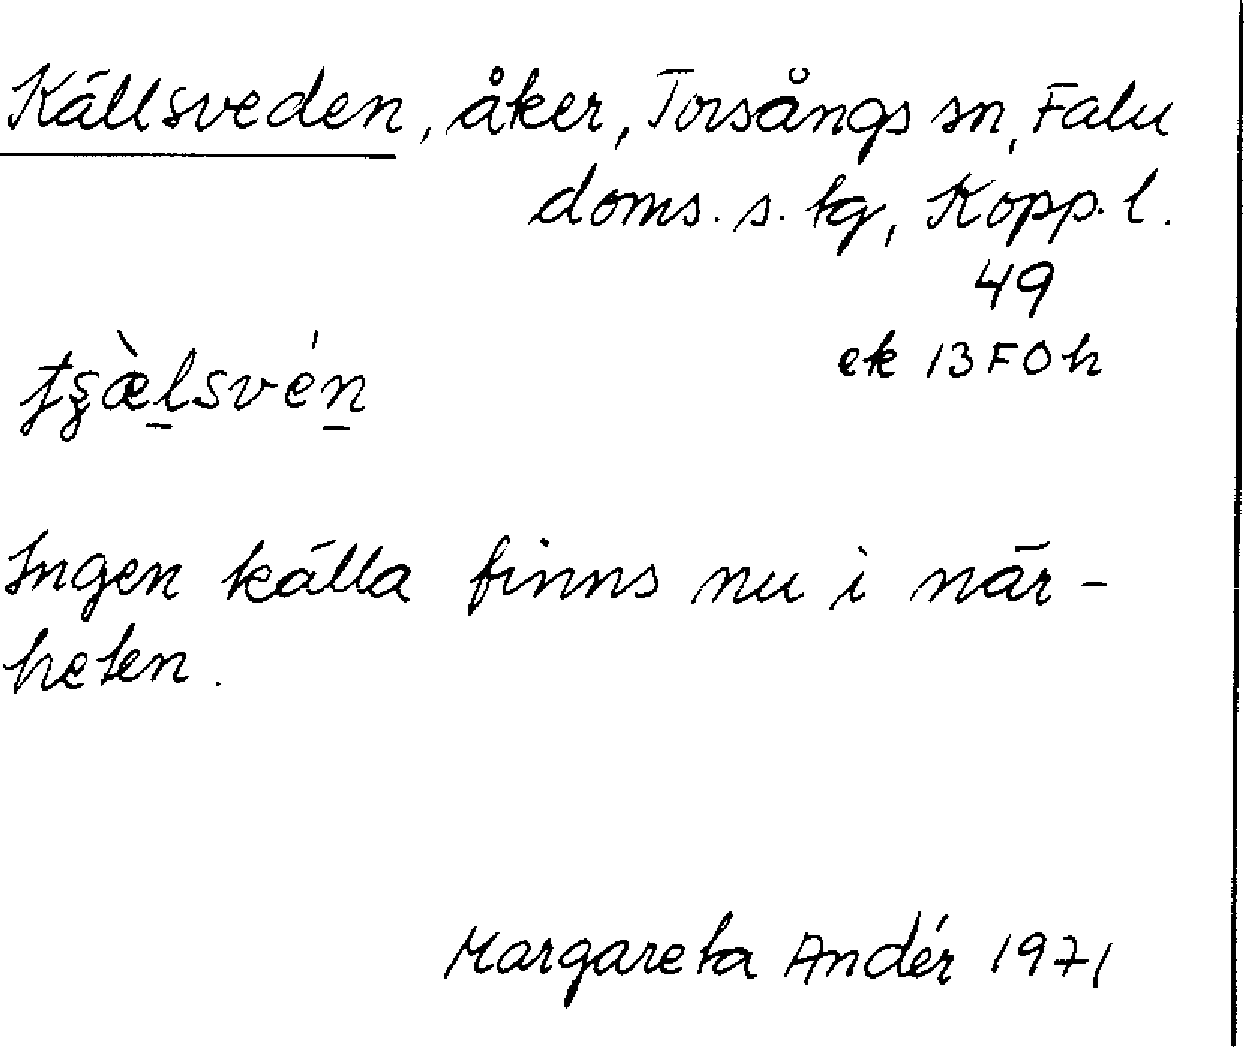 Källsveden, åker, Torsångs sn, Falu
doms. s. tg, Kopp. l.
49
ek 13F0h
tʂæ̀l̠svén̠
Ingen källa finns nu i när-
heten.
Margareta Andér 1971